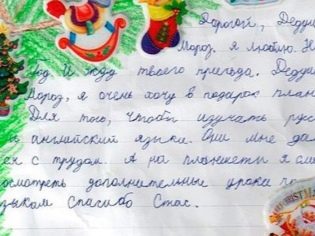 Дорогой, Дедуш
Мороз. я люблю. Н
год. И жду твоего приезда. Дедуш
Мороз, я очень хочу в подарок план
Для того, чтобы изучать рус
и английский языки. Они мне да
ся с трудом. А на планшеты я см
осмотреть дополнительные уроки по
зыкам Спасибо Стас.